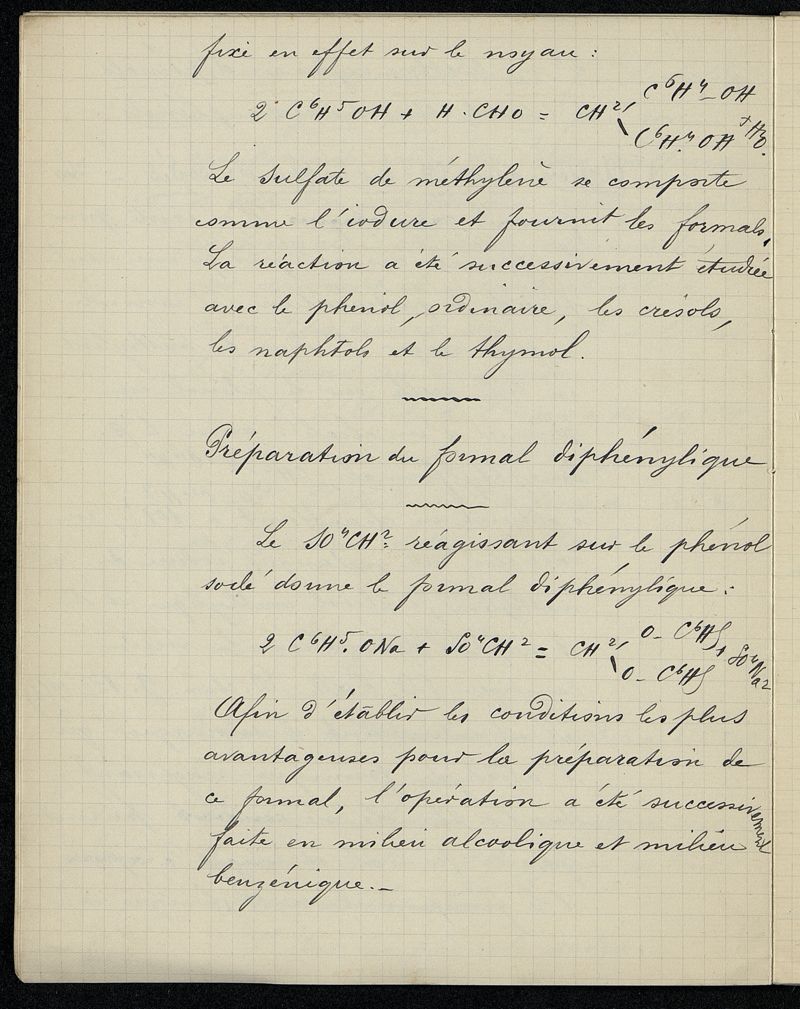 fixé en effet sur le noyau :
C⁶H⁴ – OH
2 C⁶H⁵OH + H.CHO = CH²
C⁶H⁴.OH + H²O.
Le sulfate de méthylène se comporte
comme l'iodure et fournit les formals.
La réaction a été successivement étudiée
avec le phénol, ordinaire, les crésols,
les naphtols et le thymol.
Préparation du formal diphénylique
Le SO⁴CH² réagissant sur le phénol
sodé donne le formal diphénylique :
O – C⁶H⁵
2 C⁶H⁵.ONa + SO⁴CH² = CH² + SO⁴Na²
O – C⁶H⁵
Afin d'établir les conditions les plus
avantageuses pour la préparation de
ce formal, l'opération a été successivement
faite en milieu alcoolique et milieu
benzénique. –